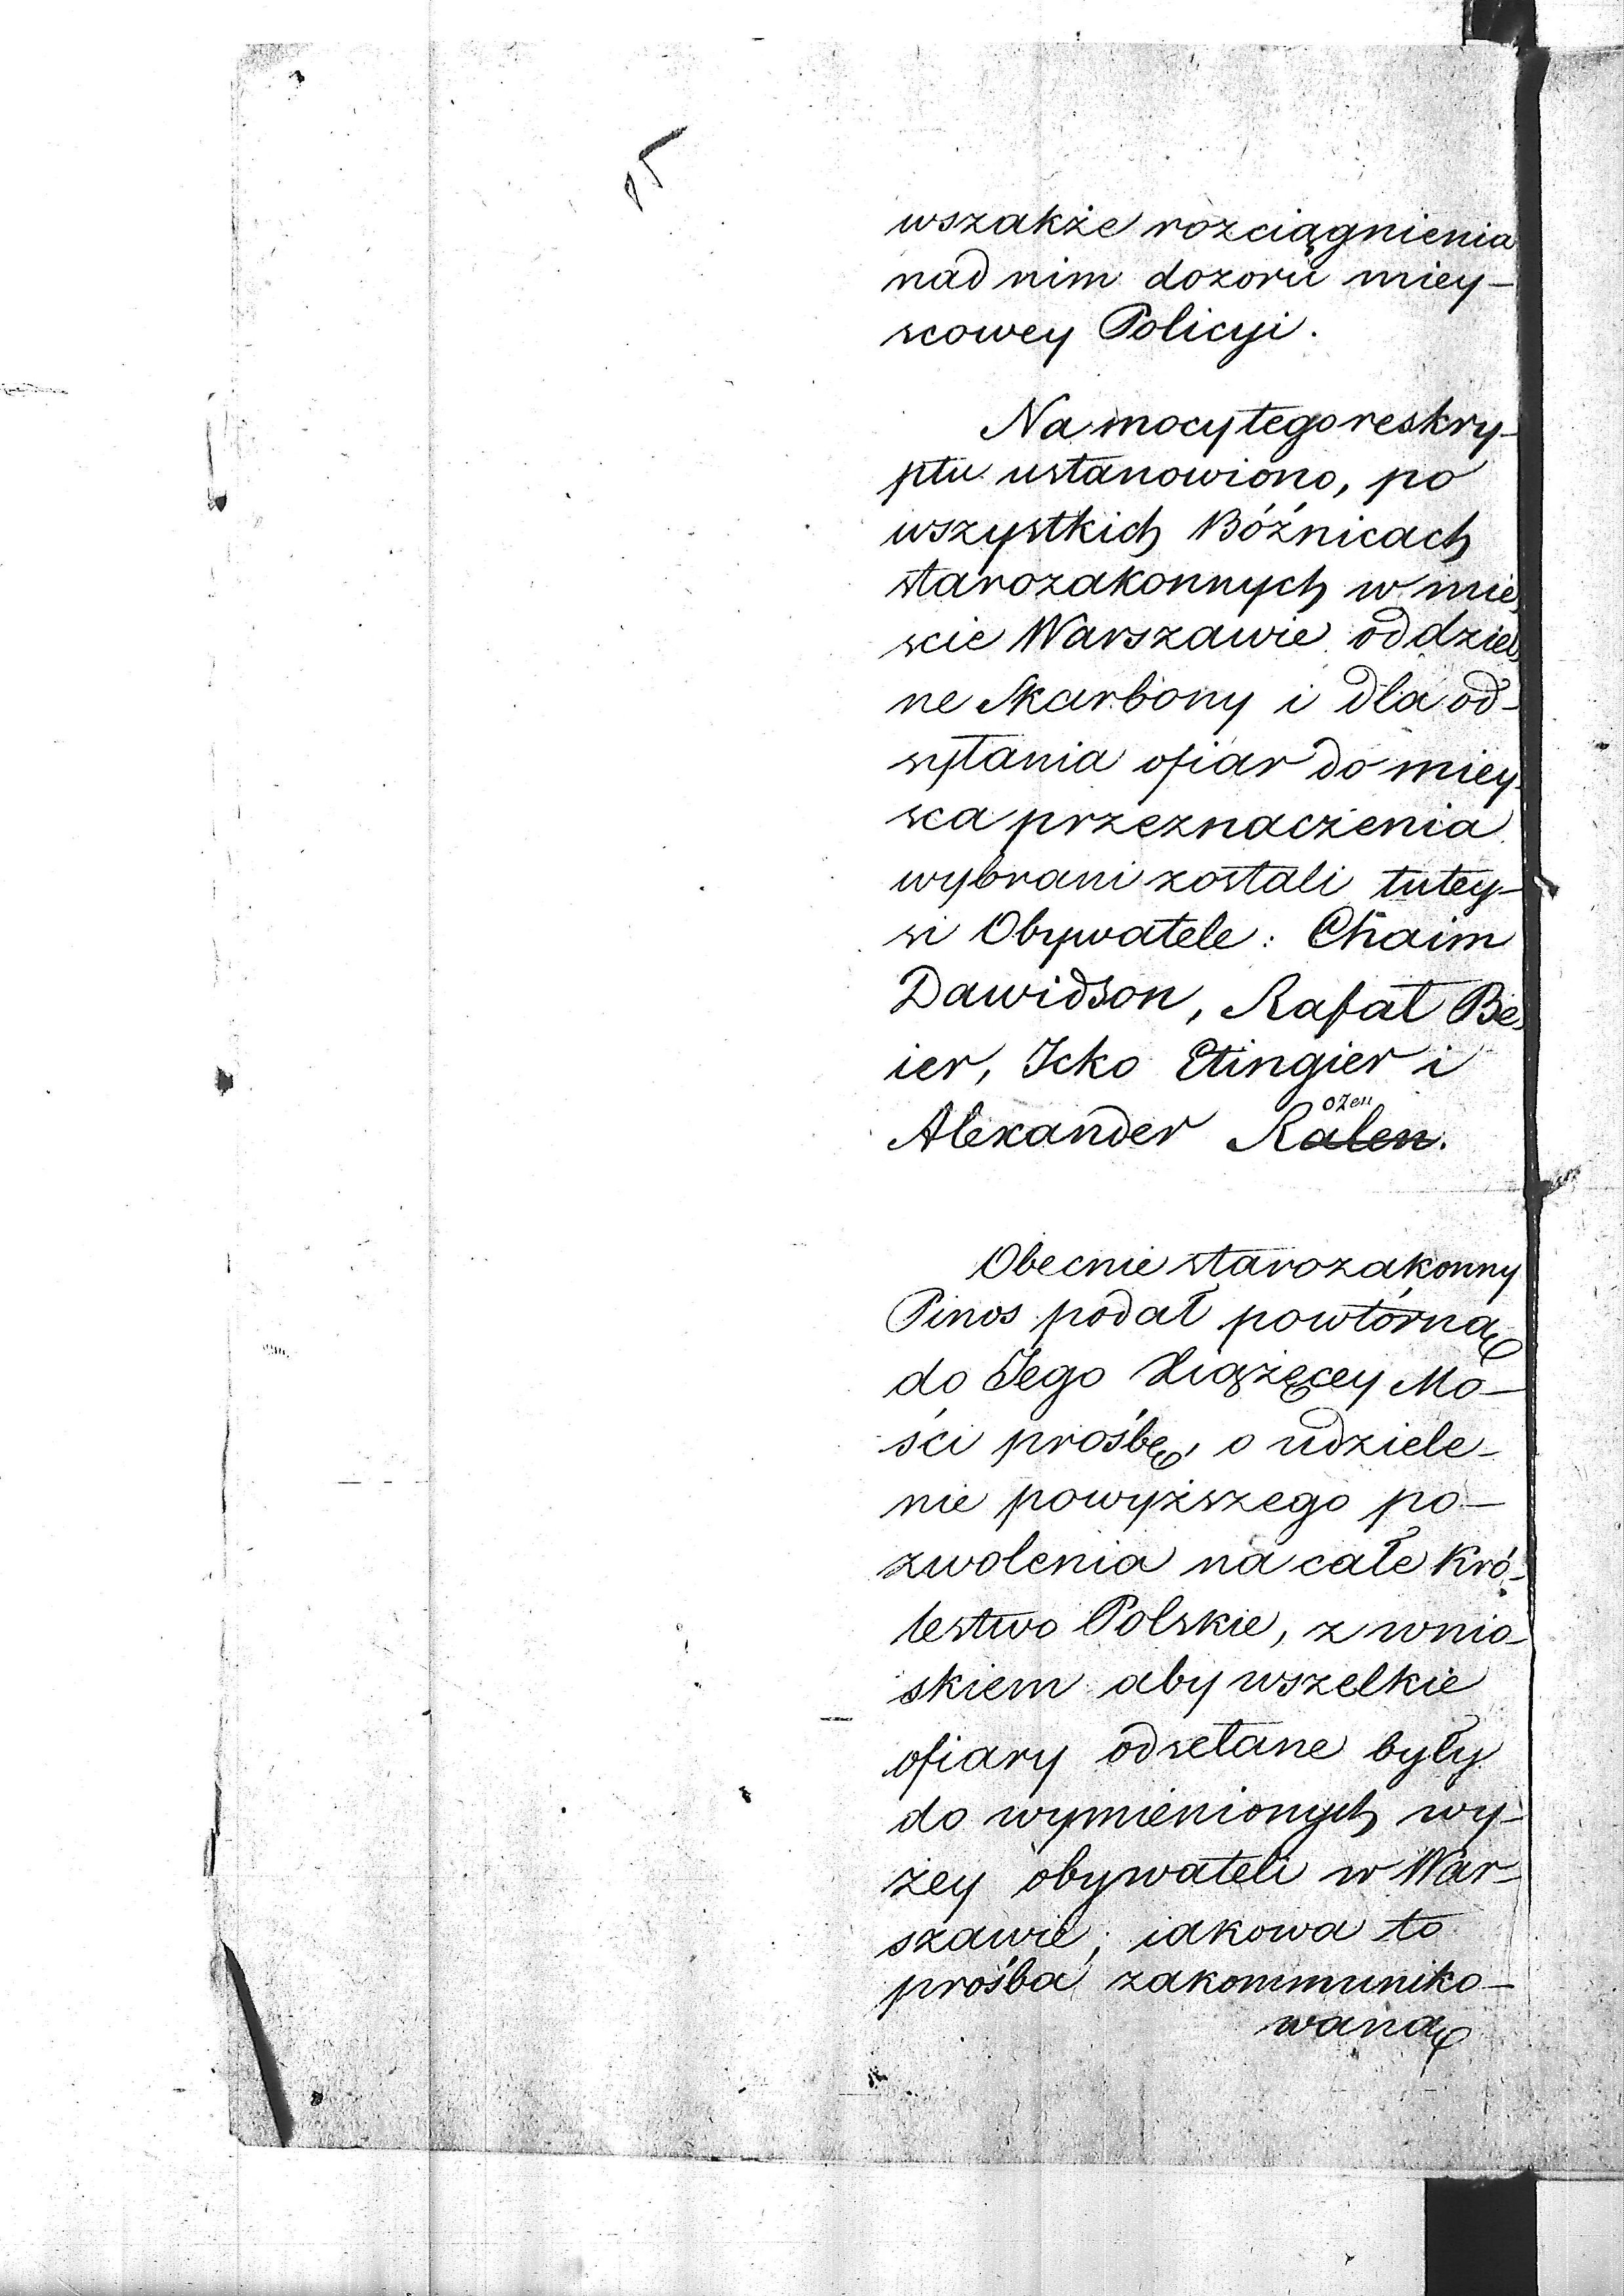 15
wszakże rozciągnienia
nad nim dozoru miey-
scowey Policyi.
Na mocy tego reskry-
ptu ustanowiono, po
wszystkich Bóźnicach
starozakonnych w mie
scie Warszawie oddziel
ne Skarbony i dla od-
syłania ofiar do miey
sca przeznaczenia
wybrani zostali tutey-
si Obywatele: Chaim
Dawidson, Rafał Be
ier, Icko Etingier i
ozen
Alexander Ralen.
Obecnie starozakonny
Pinos podał powtórną
do Jego Xiążęcey Mo-
ści prośbę, o udziele-
nie powyższego po-
zwolenia na całe Kró-
lestwo Polskie, z wnio-
skiem aby wszelkie
ofiary odsełane były
do wymienionych wy-
żey obywateli w War-
szawie; iakowa to
prośba zakommuniko-
waną